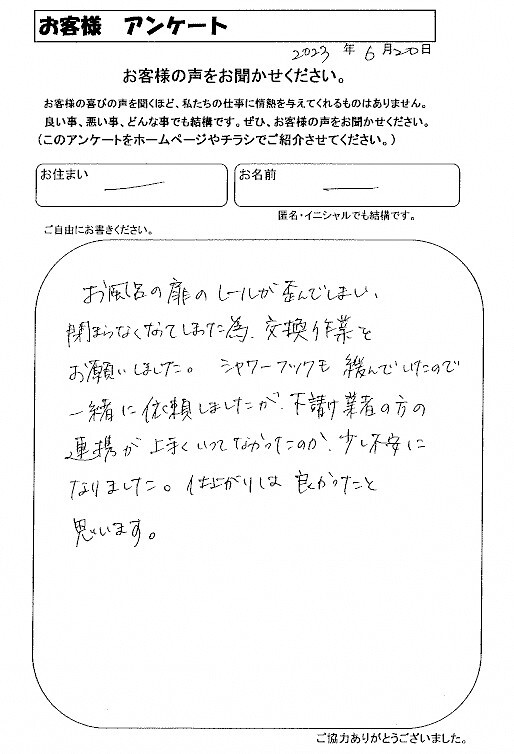 お客様　アンケート
2023 年 6 月 20 日
お客様の声をお聞かせください。
お客様の喜びの声を聞くほど、私たちの仕事に情熱を与えてくれるものはありません。
良い事、悪い事、どんな事でも結構です。ぜひ、お客様の声をお聞かせください。
(このアンケートをホームページやチラシでご紹介させてください。)
お住まい
お名前
匿名・イニシャルでも結構です。
ご自由にお書きください。
お風呂の扉のレールが歪んでしまい、
閉まらなくなてしまた為、交換作業を
お願いしました。シャワーフックも緩んでいたので
一緒に依頼しましたが、下請け業者の方の
連携が上手くいってなかったのか、少し不安に
なりました。仕上がりは良かったと
思います。
ご協力ありがとうございました。